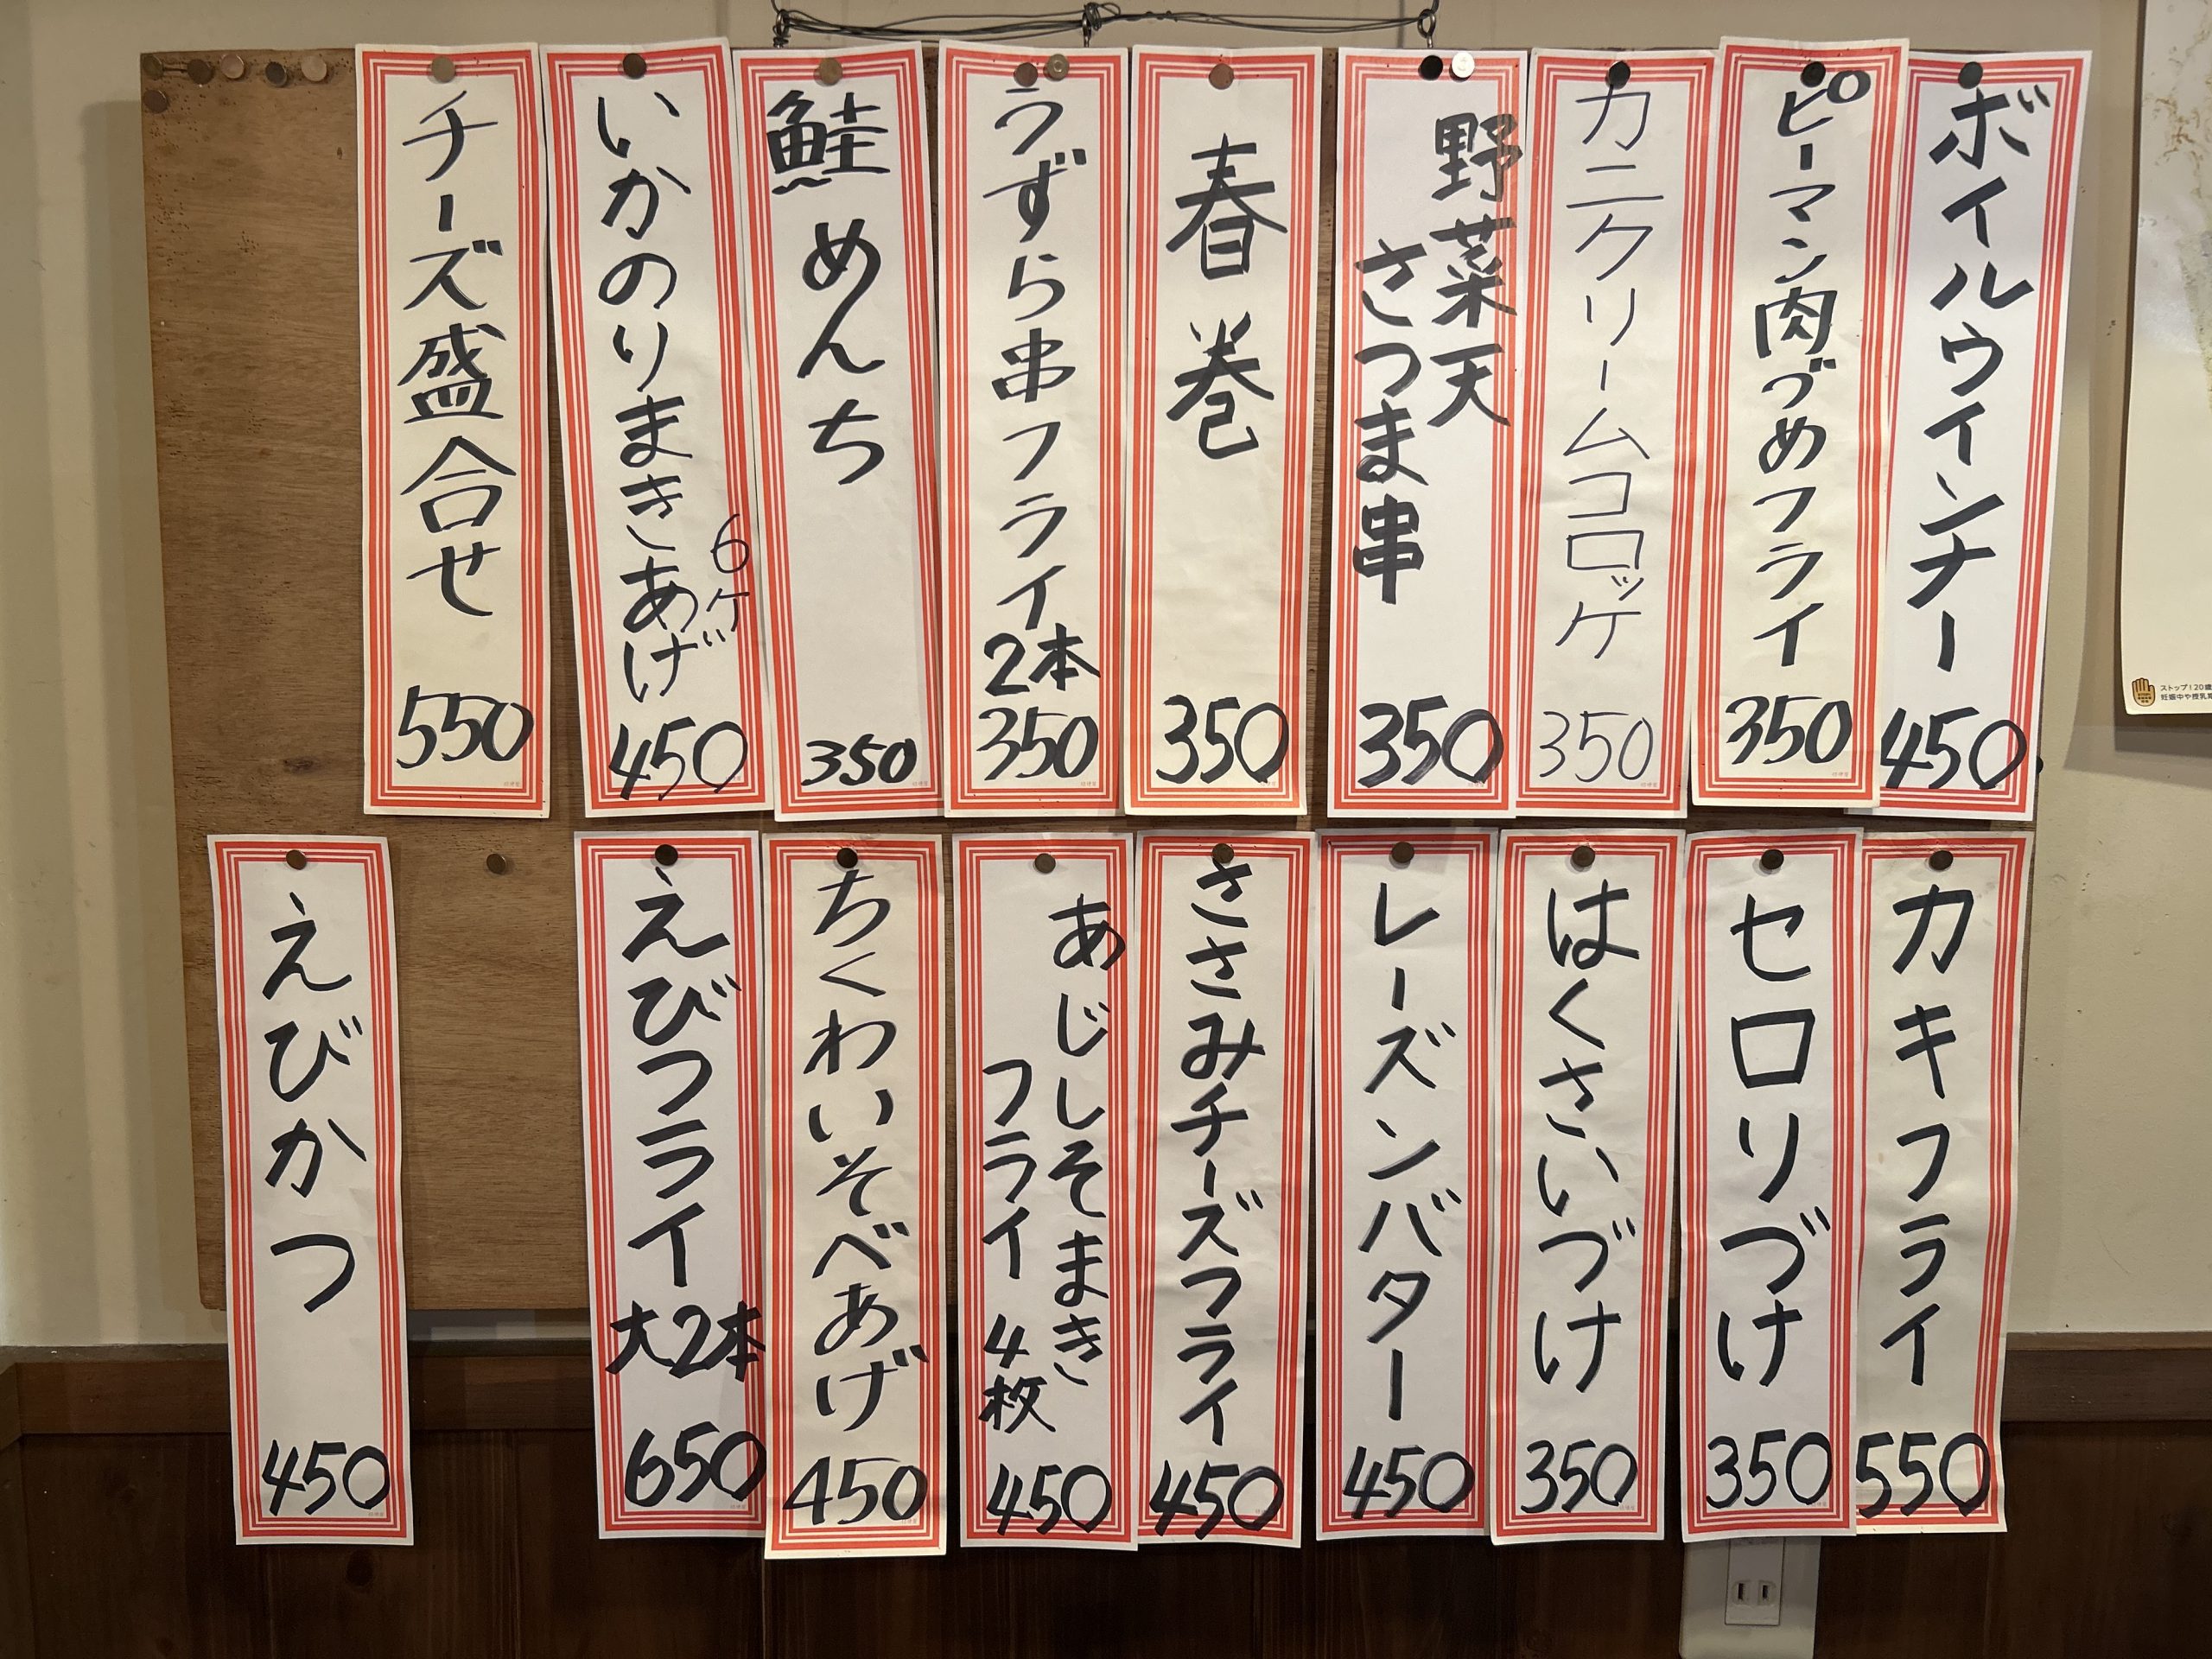 ボイルウインナー
450
ピーマン肉づめフライ
350
カニクリームコロッケ
350
野菜天
さつま串
350
春巻
350
うずら串フライ
2本
350
鮭めんち
350
いかのりまきあげ
6ケ
450
チーズ盛合せ
550
カキフライ
550
セロリづけ
350
はくさいづけ
350
レーズンバター
450
ささみチーズフライ
450
あじしそまき
フライ 4枚
450
ちくわいそべあげ
450
えびフライ
大2本
650
えびかつ
450
ストップ!20歳